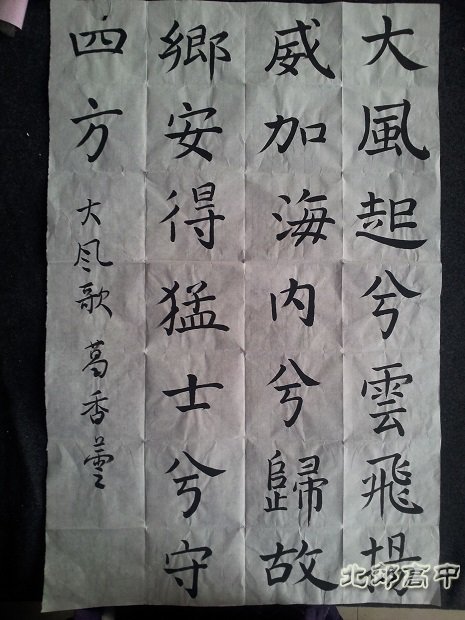 大風起兮雲飛揚
威加海内兮歸故
鄉安得猛士兮守
四方
大风歌 葛香云
北郊高中